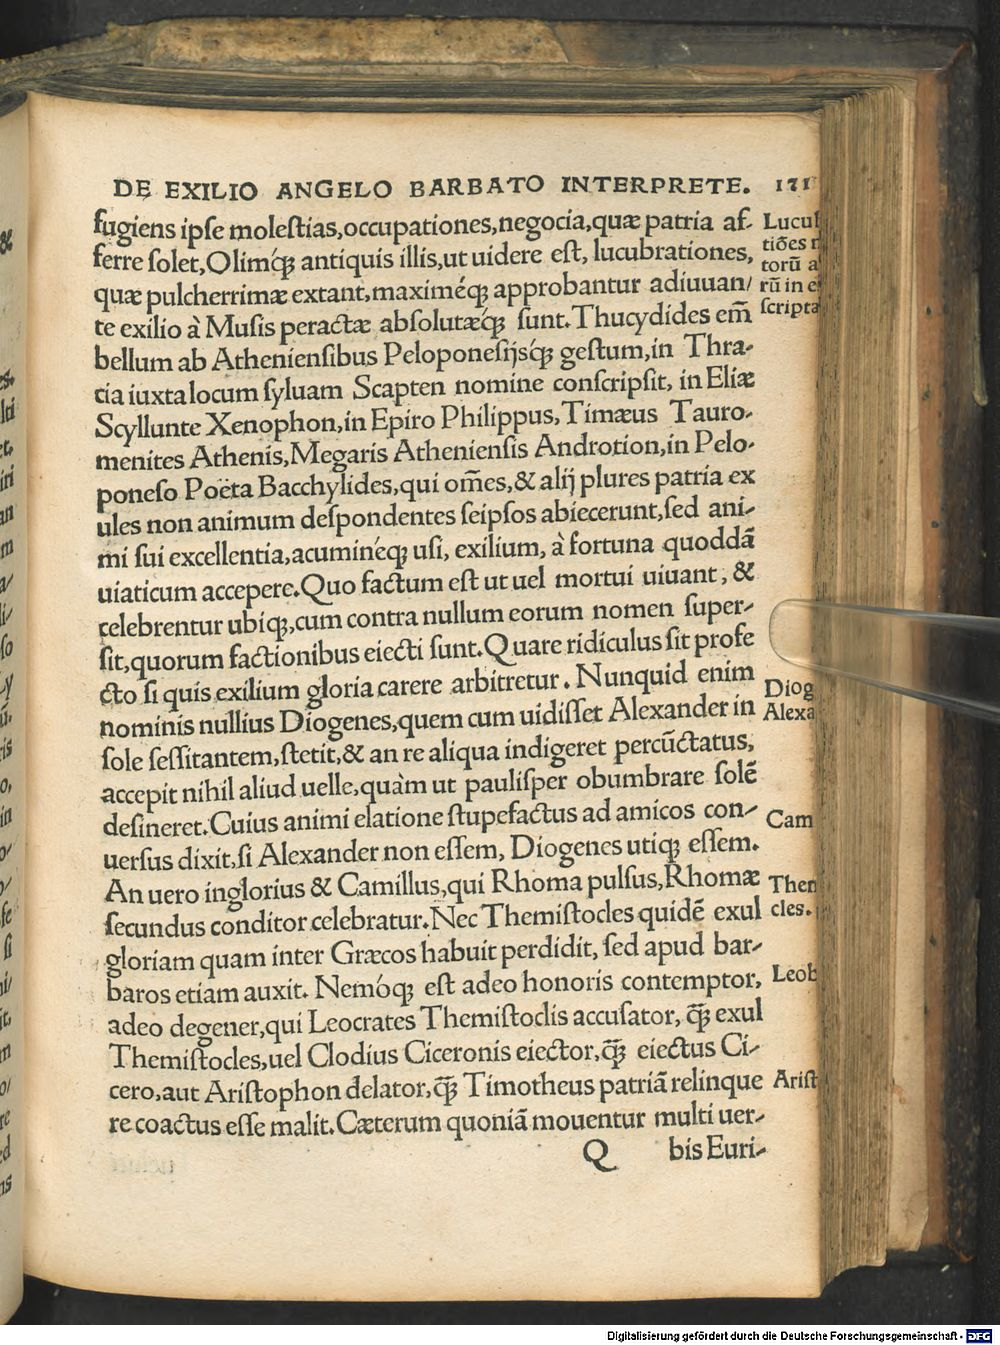 DE EXILIO ANGELO BARBATO INTERPRETE. 121
fugiens ipſe moleſtias,occupationes,negocia,quæ patria af-
ferre ſolet,Olimq́ꝫ antiquis illis,ut uidere eſt, lucubrationes,
quæ pulcherrimæ extant,maximéqꝫ approbantur adiuuan/
te exilio à Muſis peractæ abſolutæq́ꝫ ſunt.Thucydides em̃
bellum ab Athenienſibus Peloponeſijsq́ꝫ geſtum,in Thra-
cia iuxta locum ſyluam Scapten nomine conſcripſit, in Eliæ
Scyllunte Xenophon,in Epiro Philippus,Timæus Tauro-
menites Athenis,Megaris Athenienſis Androtion,in Pelo-
poneſo Poëta Bacchylides,qui om̃es,& alij plures patria ex
ules non animum deſpondentes ſeipſos abiecerunt,ſed ani-
mi ſui excellentia,acumineq́ꝫ uſi, exilium, à fortuna quoddã
uiaticum accepere.Quo factum eſt ut uel mortui uiuant, &
celebrentur ubiqꝫ,cum contra nullum eorum nomen ſuper-
ſit,quorum factionibus eiecti ſunt.Quare ridiculus ſit profe
cto ſi quis exilium gloria carere arbitretur. Nunquid enim
nominis nullius Diogenes,quem cum uidiſſet Alexander in
ſole ſeſſitantem,ſtetit,& an re aliqua indigeret percũctatus,
accepit nihil aliud uelle,quàm ut pauliſper obumbrare ſolẽ
deſineret.Cuius animi elatione ſtupefactus ad amicos con-
uerſus dixit,ſi Alexander non eſſem, Diogenes utiqꝫ eſſem.
An uero inglorius & Camillus,qui Rhoma pulſus,Rhomæ
ſecundus conditor celebratur.Nec Themiſtocles quidẽ exul
gloriam quam inter Græcos habuit perdidit, ſed apud bar-
baros etiam auxit. Nemóqꝫ eſt adeo honoris contemptor,
adeo degener,qui Leocrates Themiſtoclis accuſator, q̃ꝫ exul
Themiſtocles,uel Clodius Ciceronis eiector,q̃ꝫ eiectus Ci-
cero,aut Ariſtophon delator,q̃ꝫ Timotheus patriã relinque
re coactus eſſe malit.Cæterum quoniã mouentur multi uer-
Q bis Euri-
Lucu
tiões
torũ a
rũ in e
ſcripta
Diog
Alexa
Cam
Them
cles.
Leob
Ariſt
Digitalisierung gefördert durch die Deutsche Forschungsgemeinschaft - DFG